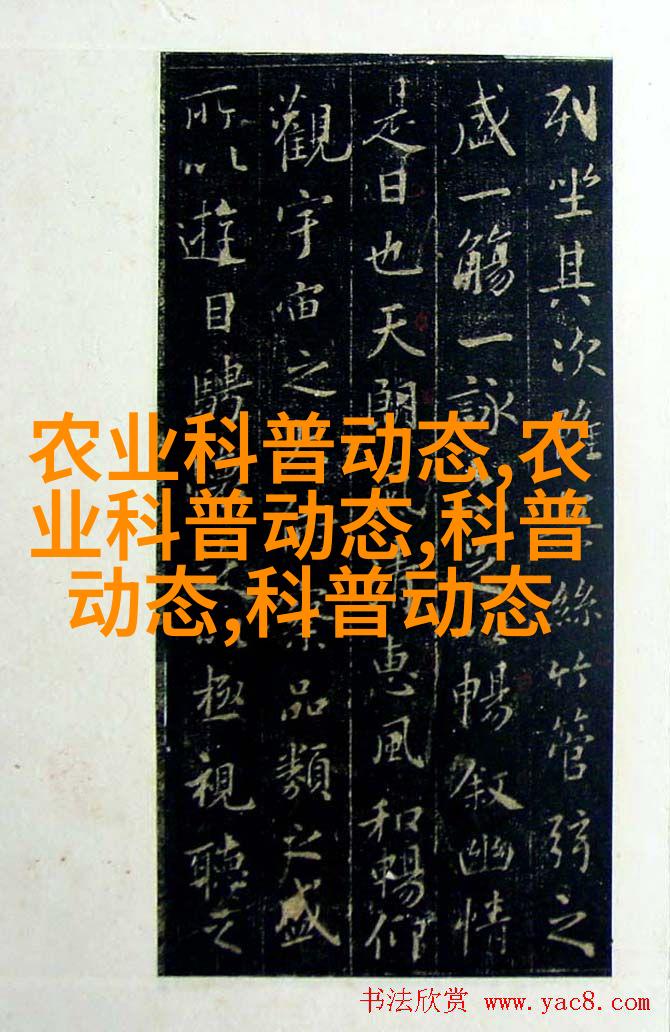 列坐其次雖絲竹管弦之
盛一觴一詠暢叙幽情
是日也天朗惠風和暢仰
觀宇宙之品類之盛
所以遊目騁極視聽之
农业科普动态,农
业科普动态,科普
动态,科普动态
书法欣赏 www.yac8.com